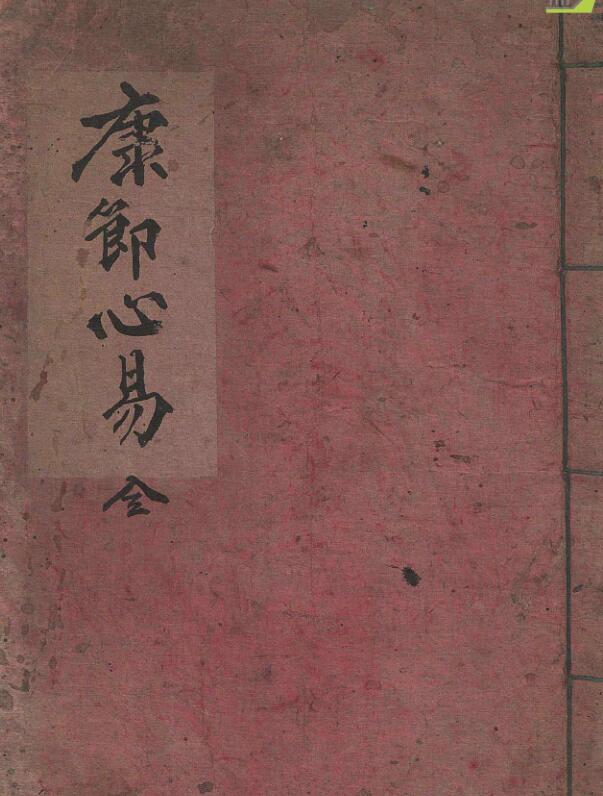 康節心易
全